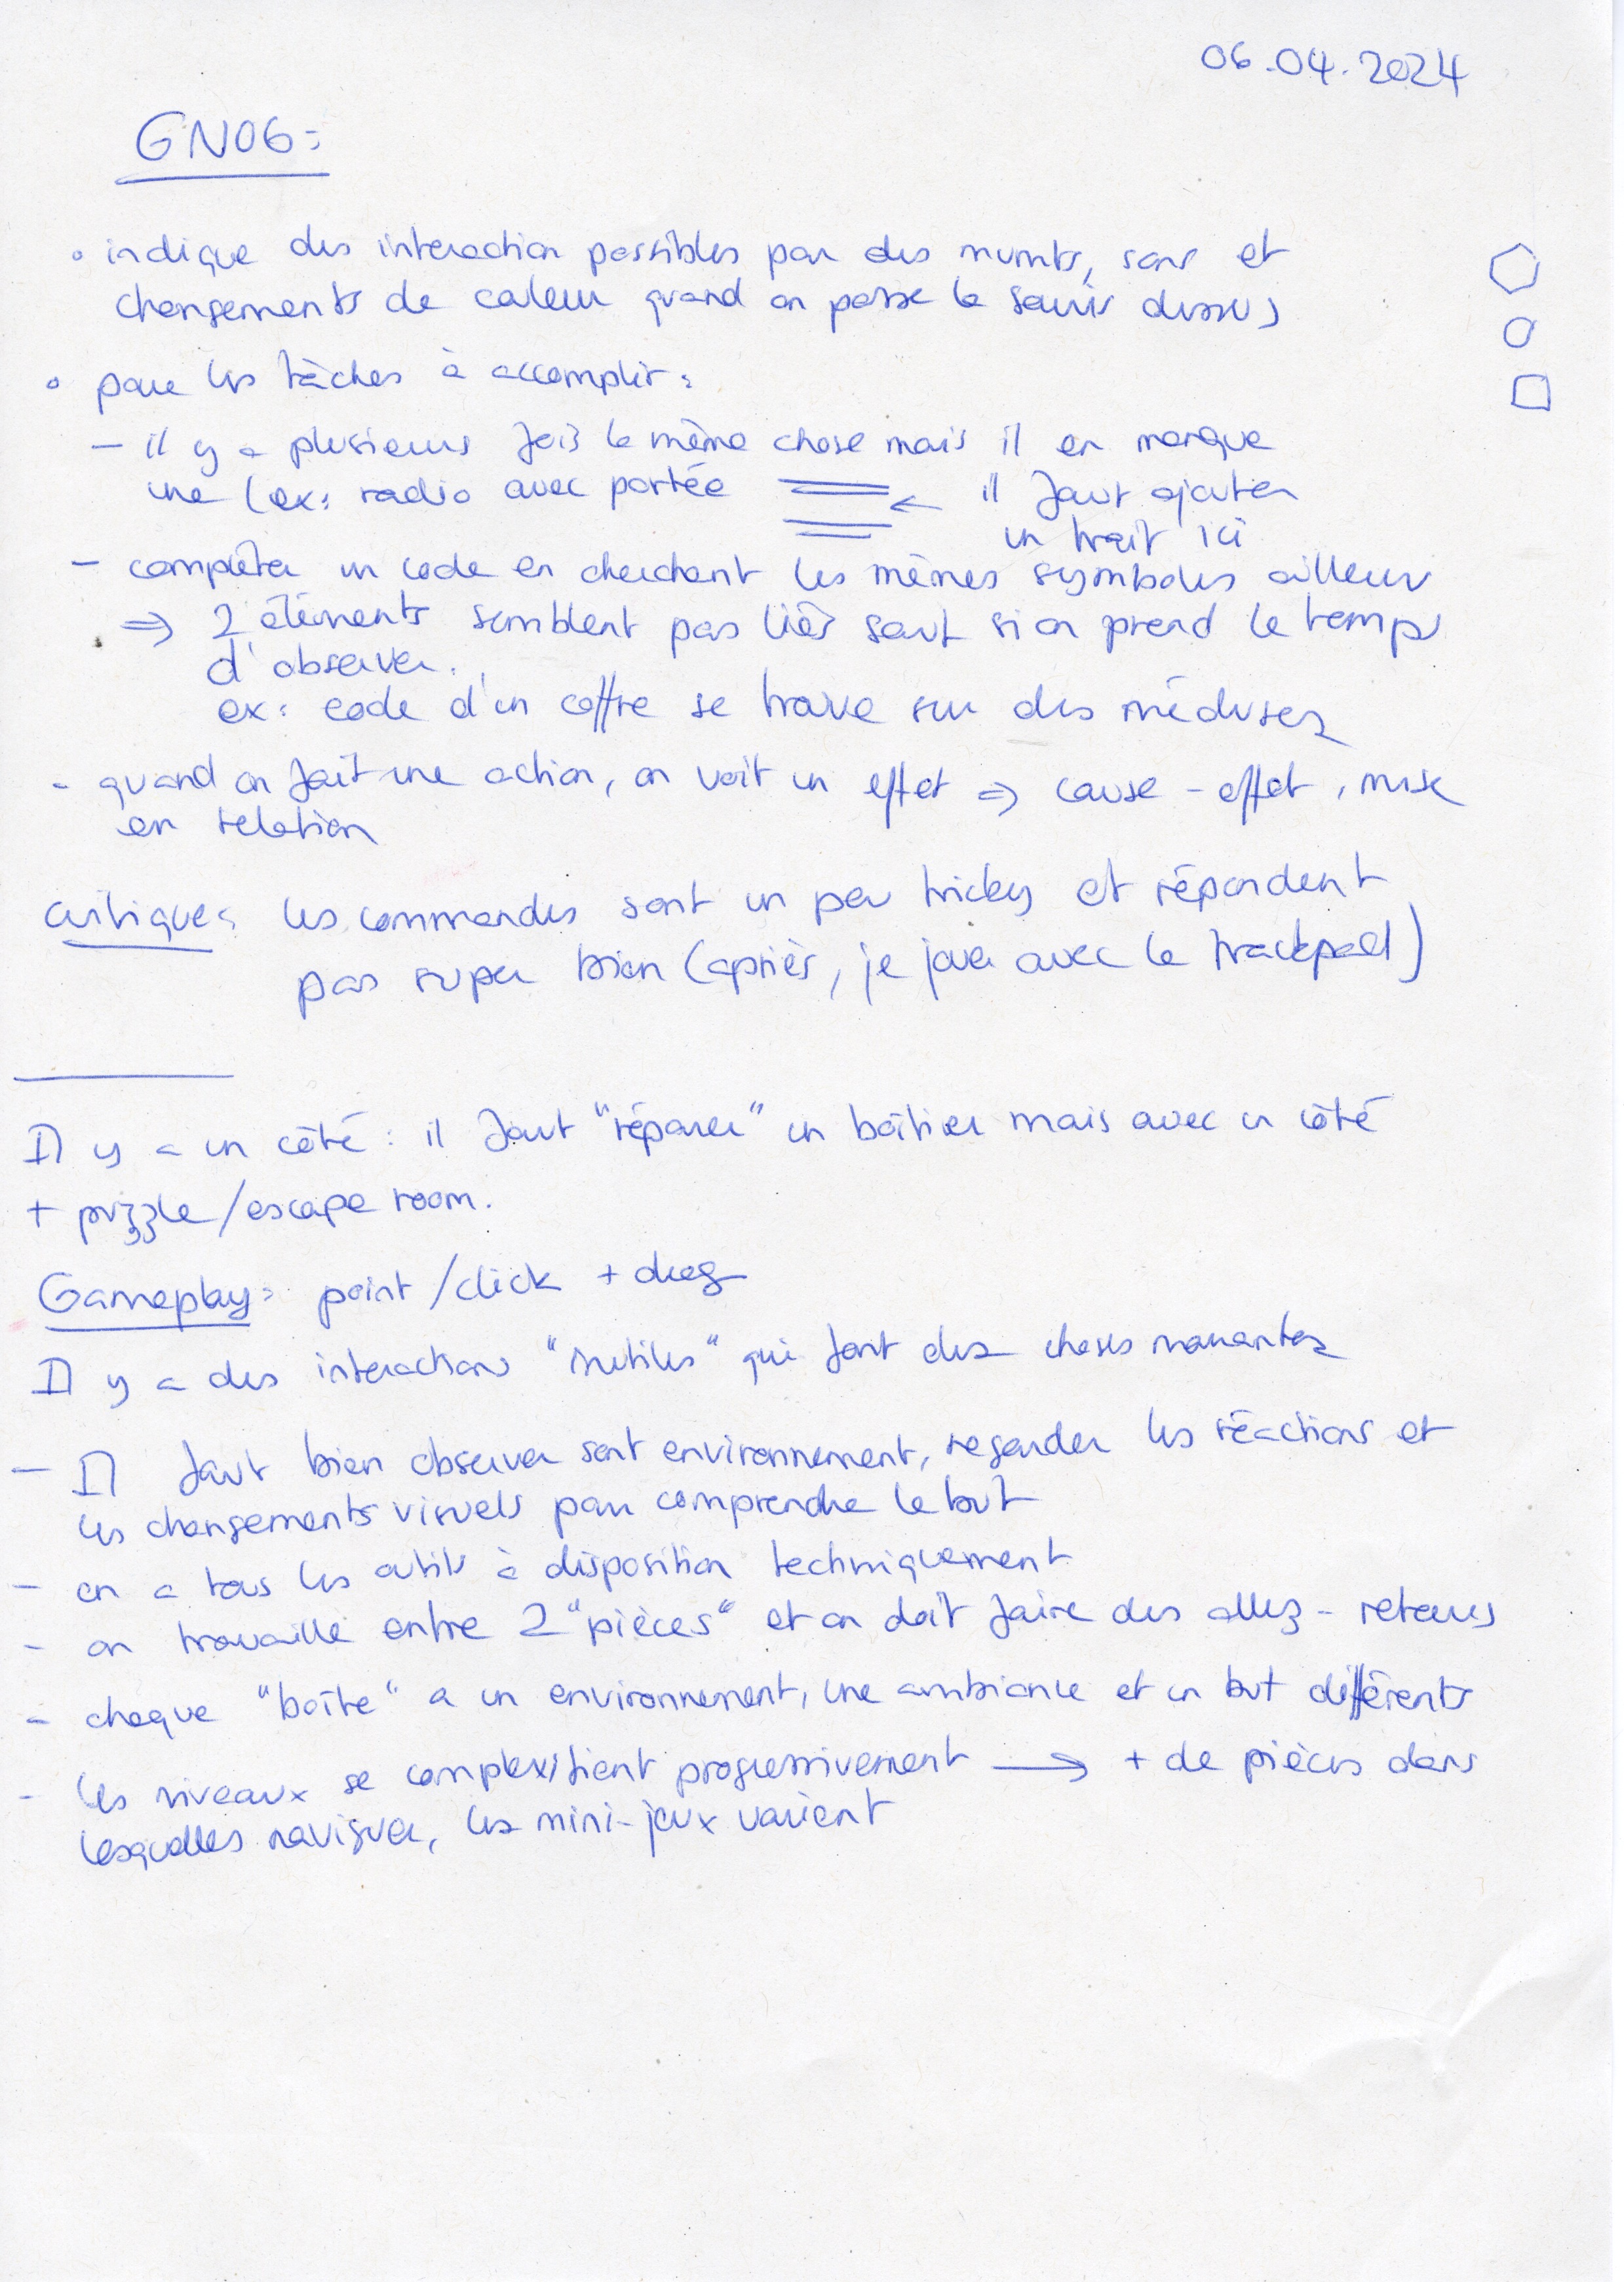 06.04.2024
GNOG:
• indique des interaction possibles par des mvmts, sons et
changements de couleur quand on passe la souris dessus
• pour les tâches à accomplir :
- il y a plusieurs fois la même chose mais il en manque
une (ex: radio avec portée ← il faut ajouter
un trait ici
- compléter un code en cherchant les mêmes symboles ailleurs
⇒ 2 éléments semblent pas liés sauf si on prend le temps
d'observer.
ex: code d'un coffre se trouve sur des méduses
- quand on fait une action, on voit un effet ⇒ cause - effet, mise
en relation
critique: les commandes sont un peu tricky et répondent
pas super bien (après, je joue avec le trackpad)
Il y a un côté : il faut "réparer" un boîtier mais avec un côté
+ puzzle/escape room.
Gameplay: point/click + drag
Il y a des interactions "inutiles" qui font des choses marrantes
- Il faut bien observer sont environnement, regarder les réactions et
les changements visuels pour comprendre le but
- on a tous les outils à disposition techniquement
- on travaille entre 2 "pièces" et on doit faire des allez-retours
- chaque "boîte" a un environnement, une ambiance et un but différents
- les niveaux se complexifient progressivement → + de pièces dans
lesquelles naviguer, les mini-jeux varient